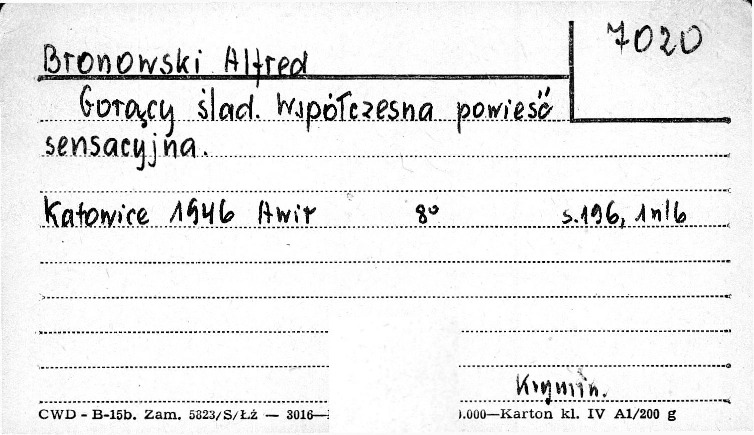 7020
Bronowski Alfred
Gorący ślad. Współczesna powieść
sensacyjna.
Katowice 1946 Awir 8° s.196, 1nlb
Krymin.
CWD - B-15b. Zam. 5823/S/ŁŻ — 3016— .000—Karton kl. IV A1/200 g